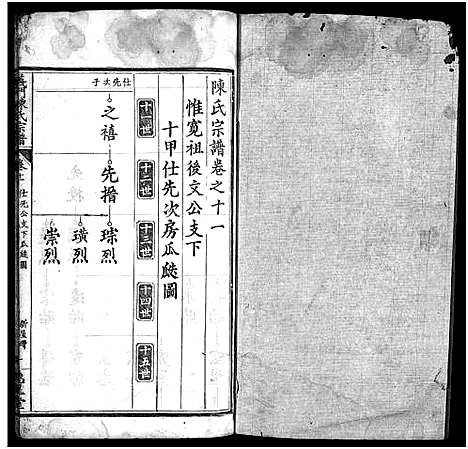 陳氏宗譜卷之十一
惟寛祖後文公支下
十甲仕先次房瓜瓞圖
十一世
十二世
十三世
十四世
十五世
仕先次子
之禧
先搢
琮烈
璜烈
崇烈
陳氏宗譜
仕先公支下瓜瓞圖